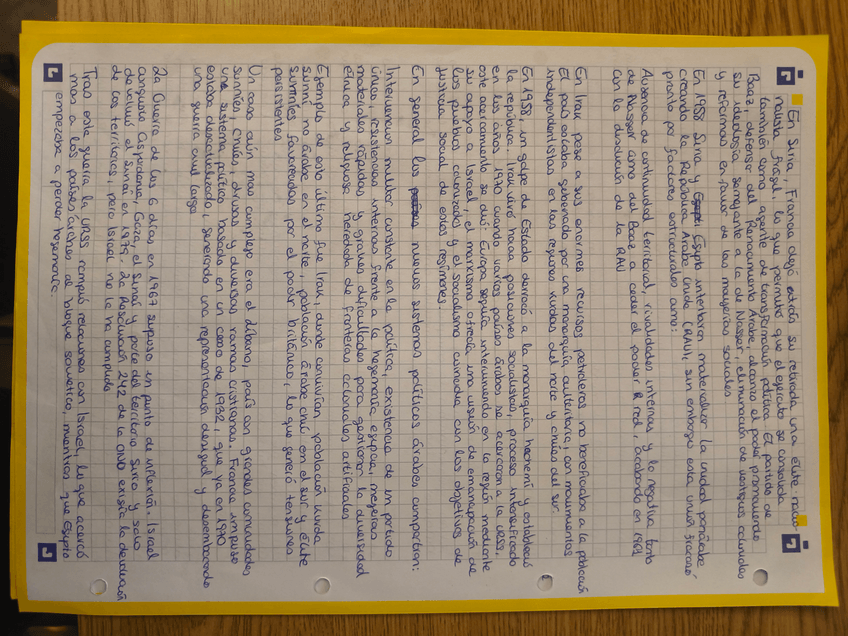 En Siria, Francia dejó estela su retirada una élite nacio-
nalista frágil, lo que permitió que el ejército se consolida
también como agente de transformación política. El partido de
Baaz, defensor del Renacimiento Árabe, alcanzó el poder promoviendo
su ideología semejante a la de Nasser, eliminación de vestigios coloniales
y reformas en favor de las mayorías sociales
En 1958 Siria y Egipto intentaron materializar la unidad panárabe
creando la República Árabe Unida (RAU), sin embargo esta unión fracasó
pronto por factores estructurales como:
Ausencia de continuidad territorial, rivalidades internas y la negativa tanto
de Nasser como del Baaz a ceder el poder real, acabando en 1961
con la disolución de la RAU
En Irak pese a sus enormes recursos petroleros no beneficiaba a la población
El país estaba gobernado por una monarquía autoritaria, con movimientos
independentistas en las regiones kurdas del norte y chiíes del sur.
En 1958, un golpe de Estado derrocó a la monarquía hachemí y estableció
la república. Irak viró hacia posiciones socialistas, proceso intensificado
en los años 1970 cuando varios países árabes se acercaron a la URSS,
este acercamiento se dio: Europa seguía interviniendo en la región mediante
su apoyo a Israel, el marxismo ofrecía una visión de emancipación de
los pueblos colonizados y el socialismo coincidía con los objetivos de
justicia social de estos regímenes.
En general los nuevos sistemas políticos árabes compartían:
Intervención militar constante en la política, existencia de un partido
único, resistencias internas frente a la hegemonía egipcia, mejoras
materiales rápidas y graves dificultades para gestionar la diversidad
étnica y religiosa heredada de fronteras coloniales artificiales
Ejemplo de esto último fue Irak, donde convivían población kurda
sunní no árabe en el norte, población árabe chií en el sur y élite
sunníes favorecidas por el poder británico, lo que generó tensiones
persistentes
Un caso aún más complejo era el Líbano, país con grandes comunidades
sunníes, chiíes, drusas y diversas ramas cristianas. Francia impuso
un sistema político basado en un censo de 1932, que ya en 1970
estaba desactualizado, generando una representación desigual y desembocando
una guerra civil larga
La Guerra de los 6 días en 1967 supuso un punto de inflexión. Israel
conquistó Cisjordania, Gaza, el Sinaí y parte del territorio sirio y solo
devolvió el Sinaí en 1979. La Resolución 242 de la ONU exigía la devolución
de los territorios, pero Israel no la ha cumplido
Tras esta guerra la URSS rompió relaciones con Israel, lo que acercó
más a los países árabes al bloque soviético, mientras que Egipto
empezaba a perder hegemonía.